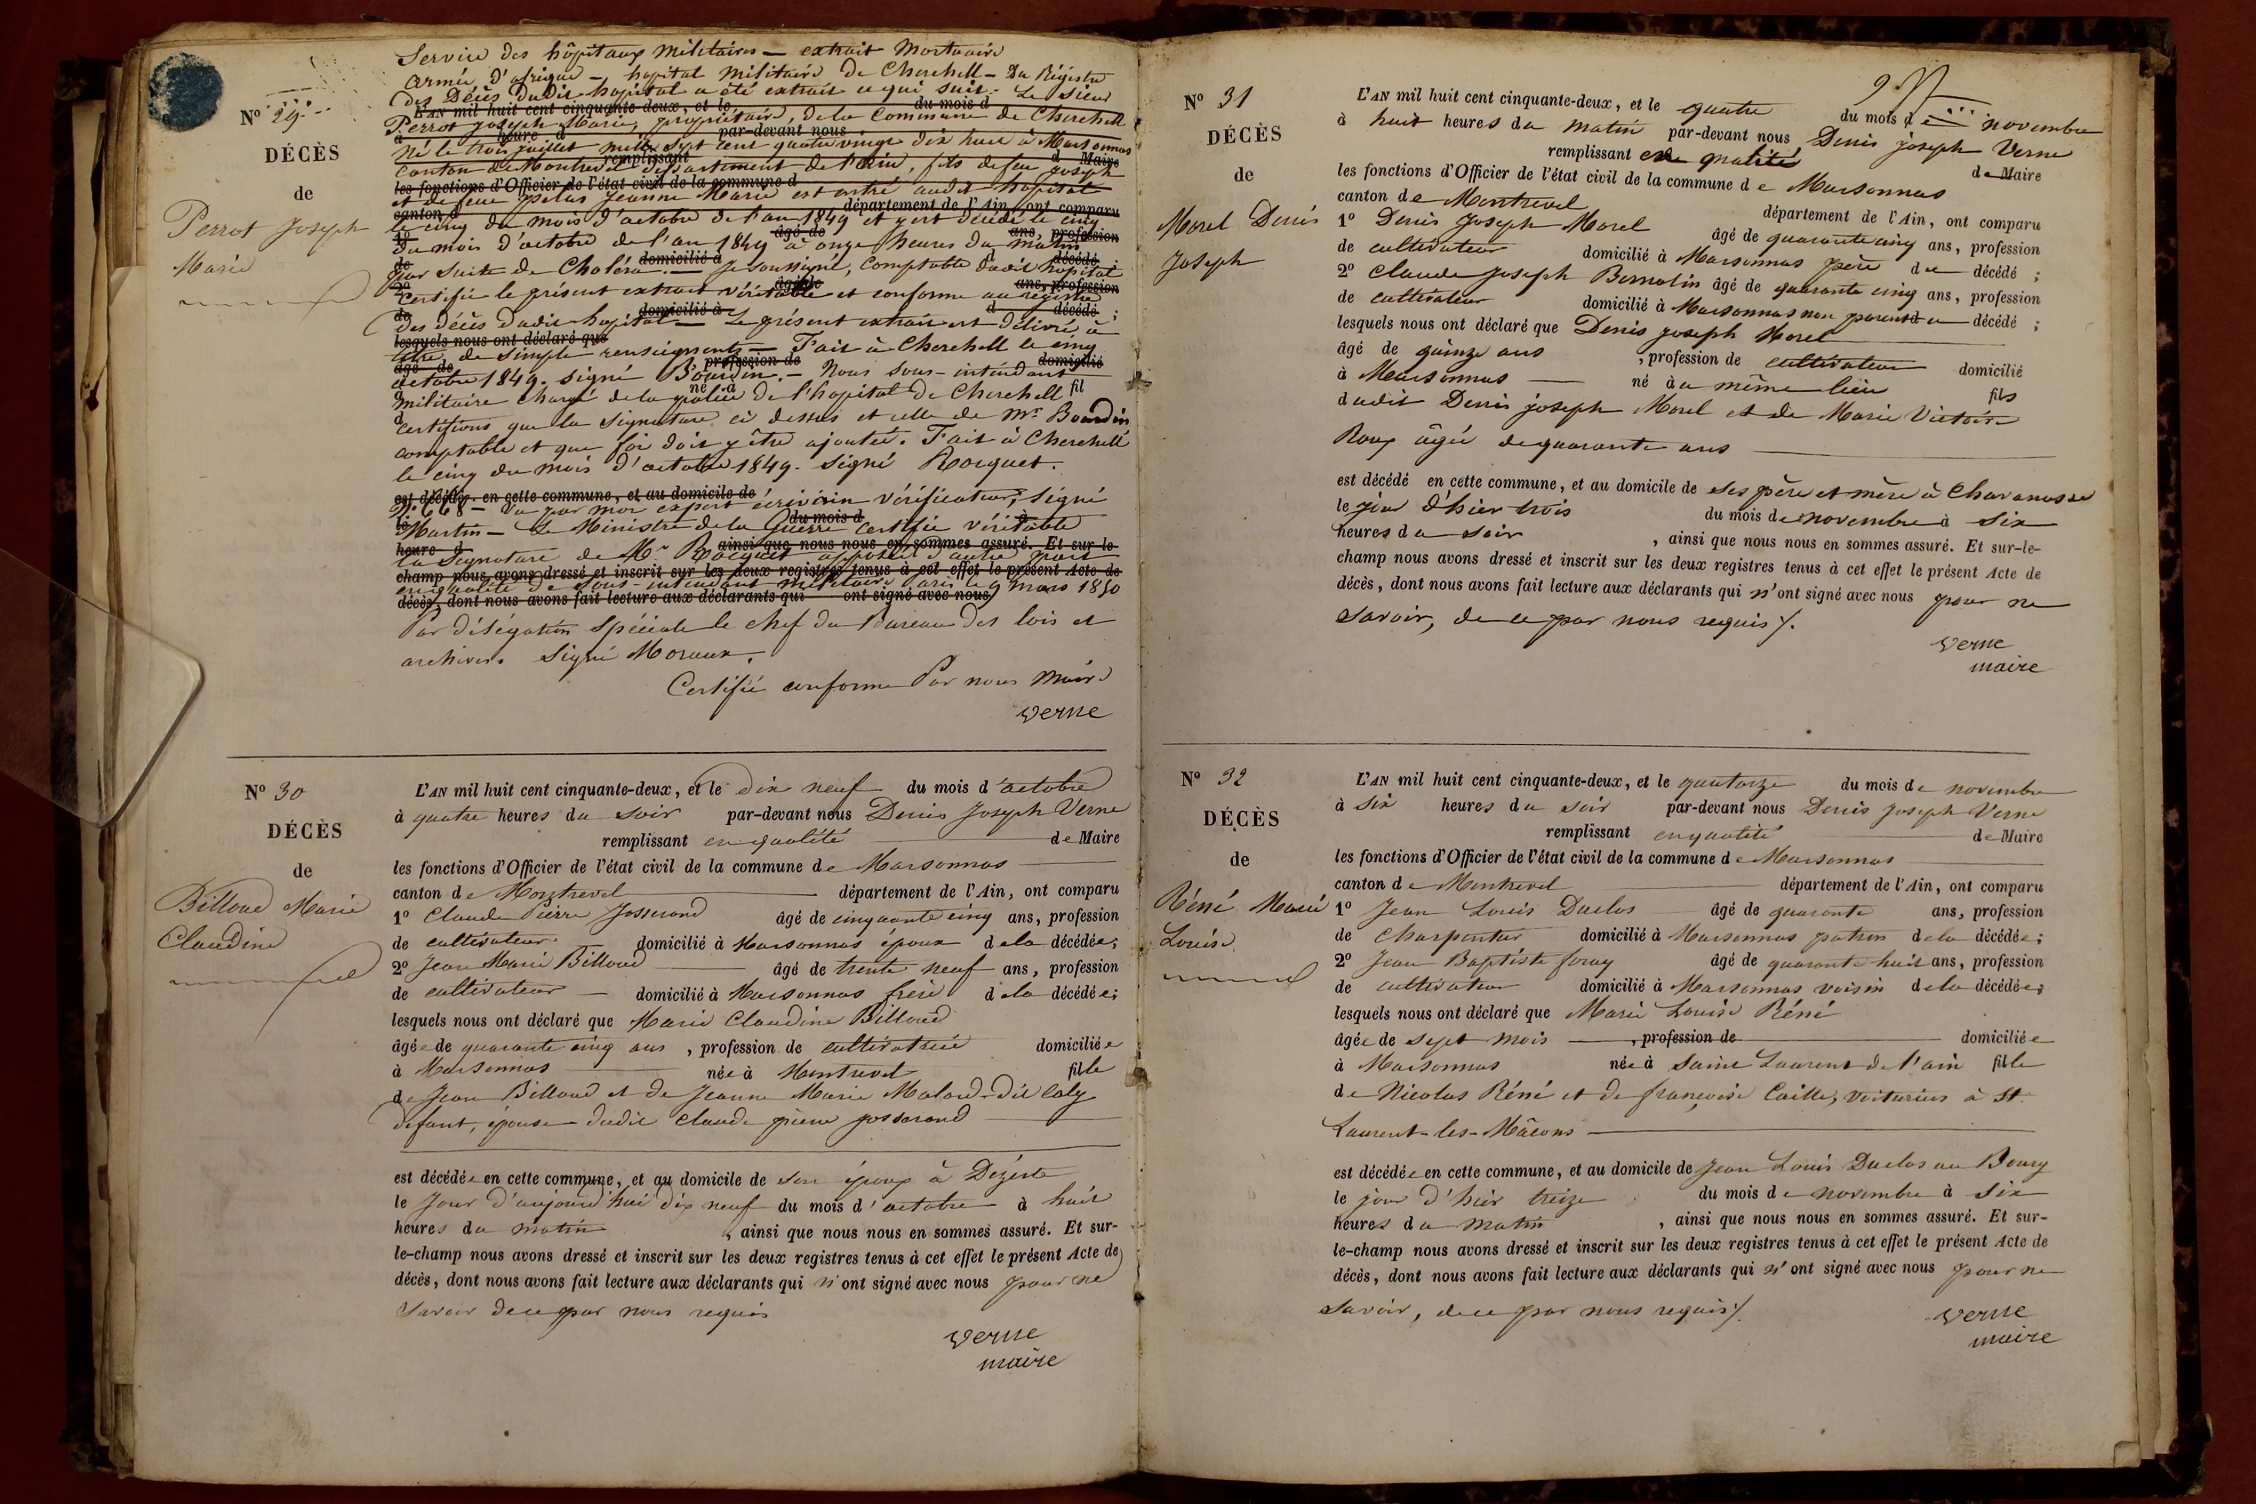 Service des hôpitaux militaires — extrait Mortuaire
Armée d'afrique — hopital militaire de Cherchell — Du Régistre
des Décès dudit hopital a été extrait ce qui suit. Le sieur
N° 29.
L'AN mil huit cent cinquante-deux, et le du mois d
Perrot Joseph Marie, propriétaire, de la Commune de Cherchell
à heure d par-devant nous
né le trois juillet mille sept cent quatre vingt dix huit à Marsonnas
DÉCÈS
remplissant d Maire
canton de Montrevel département de l'Ain, fils de feu joseph
les fonctions d'Officier de l'état civil de la commune d
de
et de feue Jeanne Marie est entré audit hopital
canton d département de l'Ain, ont comparu
le cinq du mois d'octobre de l'an 1849 et y est décédé le cinq
Perrot Joseph
Marie
1° âgé de ans, profession
du mois d'octobre de l'an 1849 à onze heures du matin
de domicilié à d décédé
par suite de Choléra. — Je soussigné, comptable dudit hopital
2° âgé de ans, profession
certifie le présent extrait véritable et conforme au régistre
de domicilié à d décédé ;
des décès dudit hopital — Le présent extrait est délivré à
lesquels nous ont déclaré que
titre de simple renseignements — Fait à Cherchell le cinq
âgé de profession de domicilié
octobre 1849. signé Bourdin. — Nous sous-intendant
à né à fil
militaire chargé de la police de l'hopital de Cherchell
d
certifions que la signature ci dessus est celle de Mr Bourdin
comptable et que foi doit y être ajoutée. Fait à Cherchell
le cinq du mois d'octobre 1849. signé Rocquet.
est décédé en cette commune, et au domicile de
N° 668 — Vu par moi expert écrivain vérificateur, signé
le du mois d à
Martin — Le Ministre de la Guerre certifie véritable
heure d ainsi que nous nous en sommes assuré. Et sur-le-
la signature de Mr Rocquet apposée d'autre part
champ nous avons dressé et inscrit sur les deux registres tenus à cet effet le présent Acte de
en qualité de sous-intendant militaire Paris le 9 mars 1850
décès, dont nous avons fait lecture aux déclarants qui ont signé avec nous
Par délégation spéciale le chef du bureau des lois et
archives. Signé Moraux.
Certifié conforme Par nous Maire
Verne
N° 30
DÉCÈS
de
Billoud Marie
Claudine
L'AN mil huit cent cinquante-deux, et le dix neuf du mois d'octobre
à quatre heures du soir par-devant nous Denis Joseph Verne
remplissant en qualité de Maire
les fonctions d'Officier de l'état civil de la commune de Marsonnas
canton de Montrevel département de l'Ain, ont comparu
1° Claude Pierre Josserand âgé de cinquante cinq ans, profession
de cultivateur domicilié à Marsonnas époux de la décédée;
2° Jean Marie Billoud âgé de trente neuf ans, profession
de cultivateur domicilié à Marsonnas frère de la décédée;
lesquels nous ont déclaré que Marie Claudine Billoud
âgée de quarante cinq ans, profession de cultivatrice domiciliée
à Marsonnas née à Montrevel fille
de Jean Billoud et de Jeanne Marie Maland-dit Caly
défunt, épouse dudit Claude pierre josserand
est décédée en cette commune, et au domicile de son époux à Dézerte
le Jour d'aujourd'hui dix neuf du mois d'octobre à huit
heures du matin, ainsi que nous nous en sommes assuré. Et sur-
le-champ nous avons dressé et inscrit sur les deux registres tenus à cet effet le présent Acte de
décès, dont nous avons fait lecture aux déclarants qui n'ont signé avec nous pour ne
savoir de ce par nous requis
Verne
maire
N° 31
DÉCÈS
de
Morel Denis
Joseph
L'AN mil huit cent cinquante-deux, et le quatre du mois de novembre
à huit heures du matin par-devant nous Denis joseph Verne
remplissant en qualité de Maire
les fonctions d'Officier de l'état civil de la commune de Marsonnas
canton de Montrevel département de l'Ain, ont comparu
1° Denis Joseph Morel âgé de quarante cinq ans, profession
de cultivateur domicilié à Marsonnas père du décédé ;
2° Claude Joseph Bernolin âgé de quarante cinq ans, profession
de cultivateur domicilié à Marsonnas non parent du décédé ;
lesquels nous ont déclaré que Denis joseph Morel
âgé de quinze ans, profession de cultivateur domicilié
à Marsonnas né au même lieu fils
dudit Denis joseph Morel et de Marie Victoire
Roux âgée de quarante ans
est décédé en cette commune, et au domicile de ses père et mère à Chavanosse
le jour d'hier trois du mois de novembre à six
heures du soir, ainsi que nous nous en sommes assuré. Et sur-le-
champ nous avons dressé et inscrit sur les deux registres tenus à cet effet le présent Acte de
décès, dont nous avons fait lecture aux déclarants qui n'ont signé avec nous pour ne
savoir, de ce par nous requis /.
Verne
maire
N° 32
DÉCÈS
de
Réné Marie
Louise
L'AN mil huit cent cinquante-deux, et le quatorze du mois de novembre
à six heures du soir par-devant nous Denis Joseph Verne
remplissant en qualité de Maire
les fonctions d'Officier de l'état civil de la commune de Marsonnas
canton de Montrevel département de l'Ain, ont comparu
1° Jean Louis Duclos âgé de quarante ans, profession
de Charpentier domicilié à Marsonnas patron de la décédée;
2° Jean Baptiste foray âgé de quarante huit ans, profession
de cultivateur domicilié à Marsonnas voisin de la décédée;
lesquels nous ont déclaré que Marie Louise Réné
âgée de sept mois, profession de domiciliée
à Marsonnas née à Saint Laurent de l'ain fille
de Nicolas Réné et de françoise Caille, voituriers à St
Laurent-les-Mâcons
est décédée en cette commune, et au domicile de Jean Louis Duclos au Bourg
le jour d'hier treize du mois de novembre à six
heures du matin, ainsi que nous nous en sommes assuré. Et sur-
le-champ nous avons dressé et inscrit sur les deux registres tenus à cet effet le présent Acte de
décès, dont nous avons fait lecture aux déclarants qui n'ont signé avec nous pour ne
savoir, de ce par nous requis /.
Verne
maire